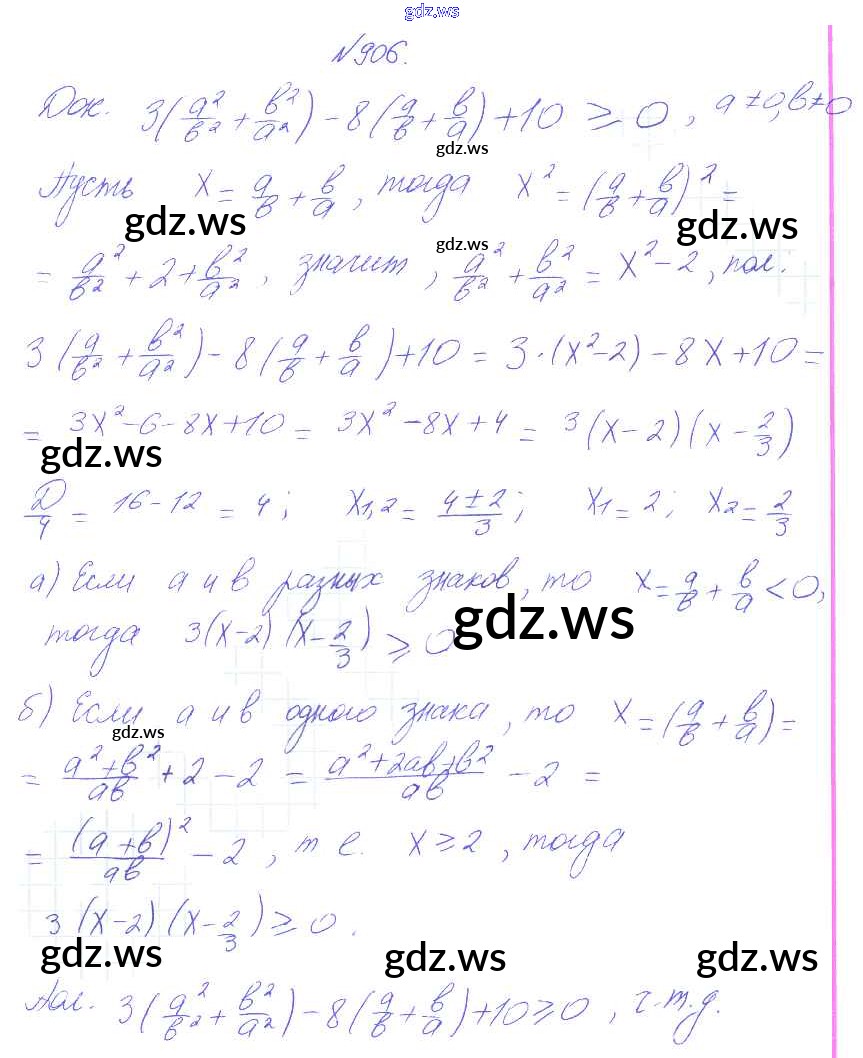 gdz.ws
№906.
Док. 3(a²/b² + b²/a²) - 8(a/b + b/a) + 10 ≥ 0, a ≠ 0, b ≠ 0
gdz.ws
Пусть x = a/b + b/a, тогда x² = (a/b + b/a)² =
gdz.ws gdz.ws gdz.ws
= a²/b² + 2 + b²/a², значит, a²/b² + b²/a² = x² - 2, пол.:
3(a/b² + b²/a²) - 8(a/b + b/a) + 10 = 3·(x² - 2) - 8x + 10 =
= 3x² - 6 - 8x + 10 = 3x² - 8x + 4 = 3(x - 2)(x - 2/3)
gdz.ws
D/4 = 16 - 12 = 4; x₁,₂ = (4 ± 2)/3; x₁ = 2; x₂ = 2/3
а) Если a и b разных знаков, то x = a/b + b/a < 0,
gdz.ws
тогда 3(x - 2)(x - 2/3) ≥ 0
б) Если a и b одного знака, то x = (a/b + b/a) =
gdz.ws
= (a² + b²)/ab + 2 - 2 = (a² + 2ab + b²)/ab - 2 =
= (a + b)²/ab - 2, т е. x ≥ 2, тогда
3(x - 2)(x - 2/3) ≥ 0.
gdz.ws gdz.ws gdz.ws
Пол. 3(a²/b² + b²/a²) - 8(a/b + b/a) + 10 ≥ 0, ч.т.д.